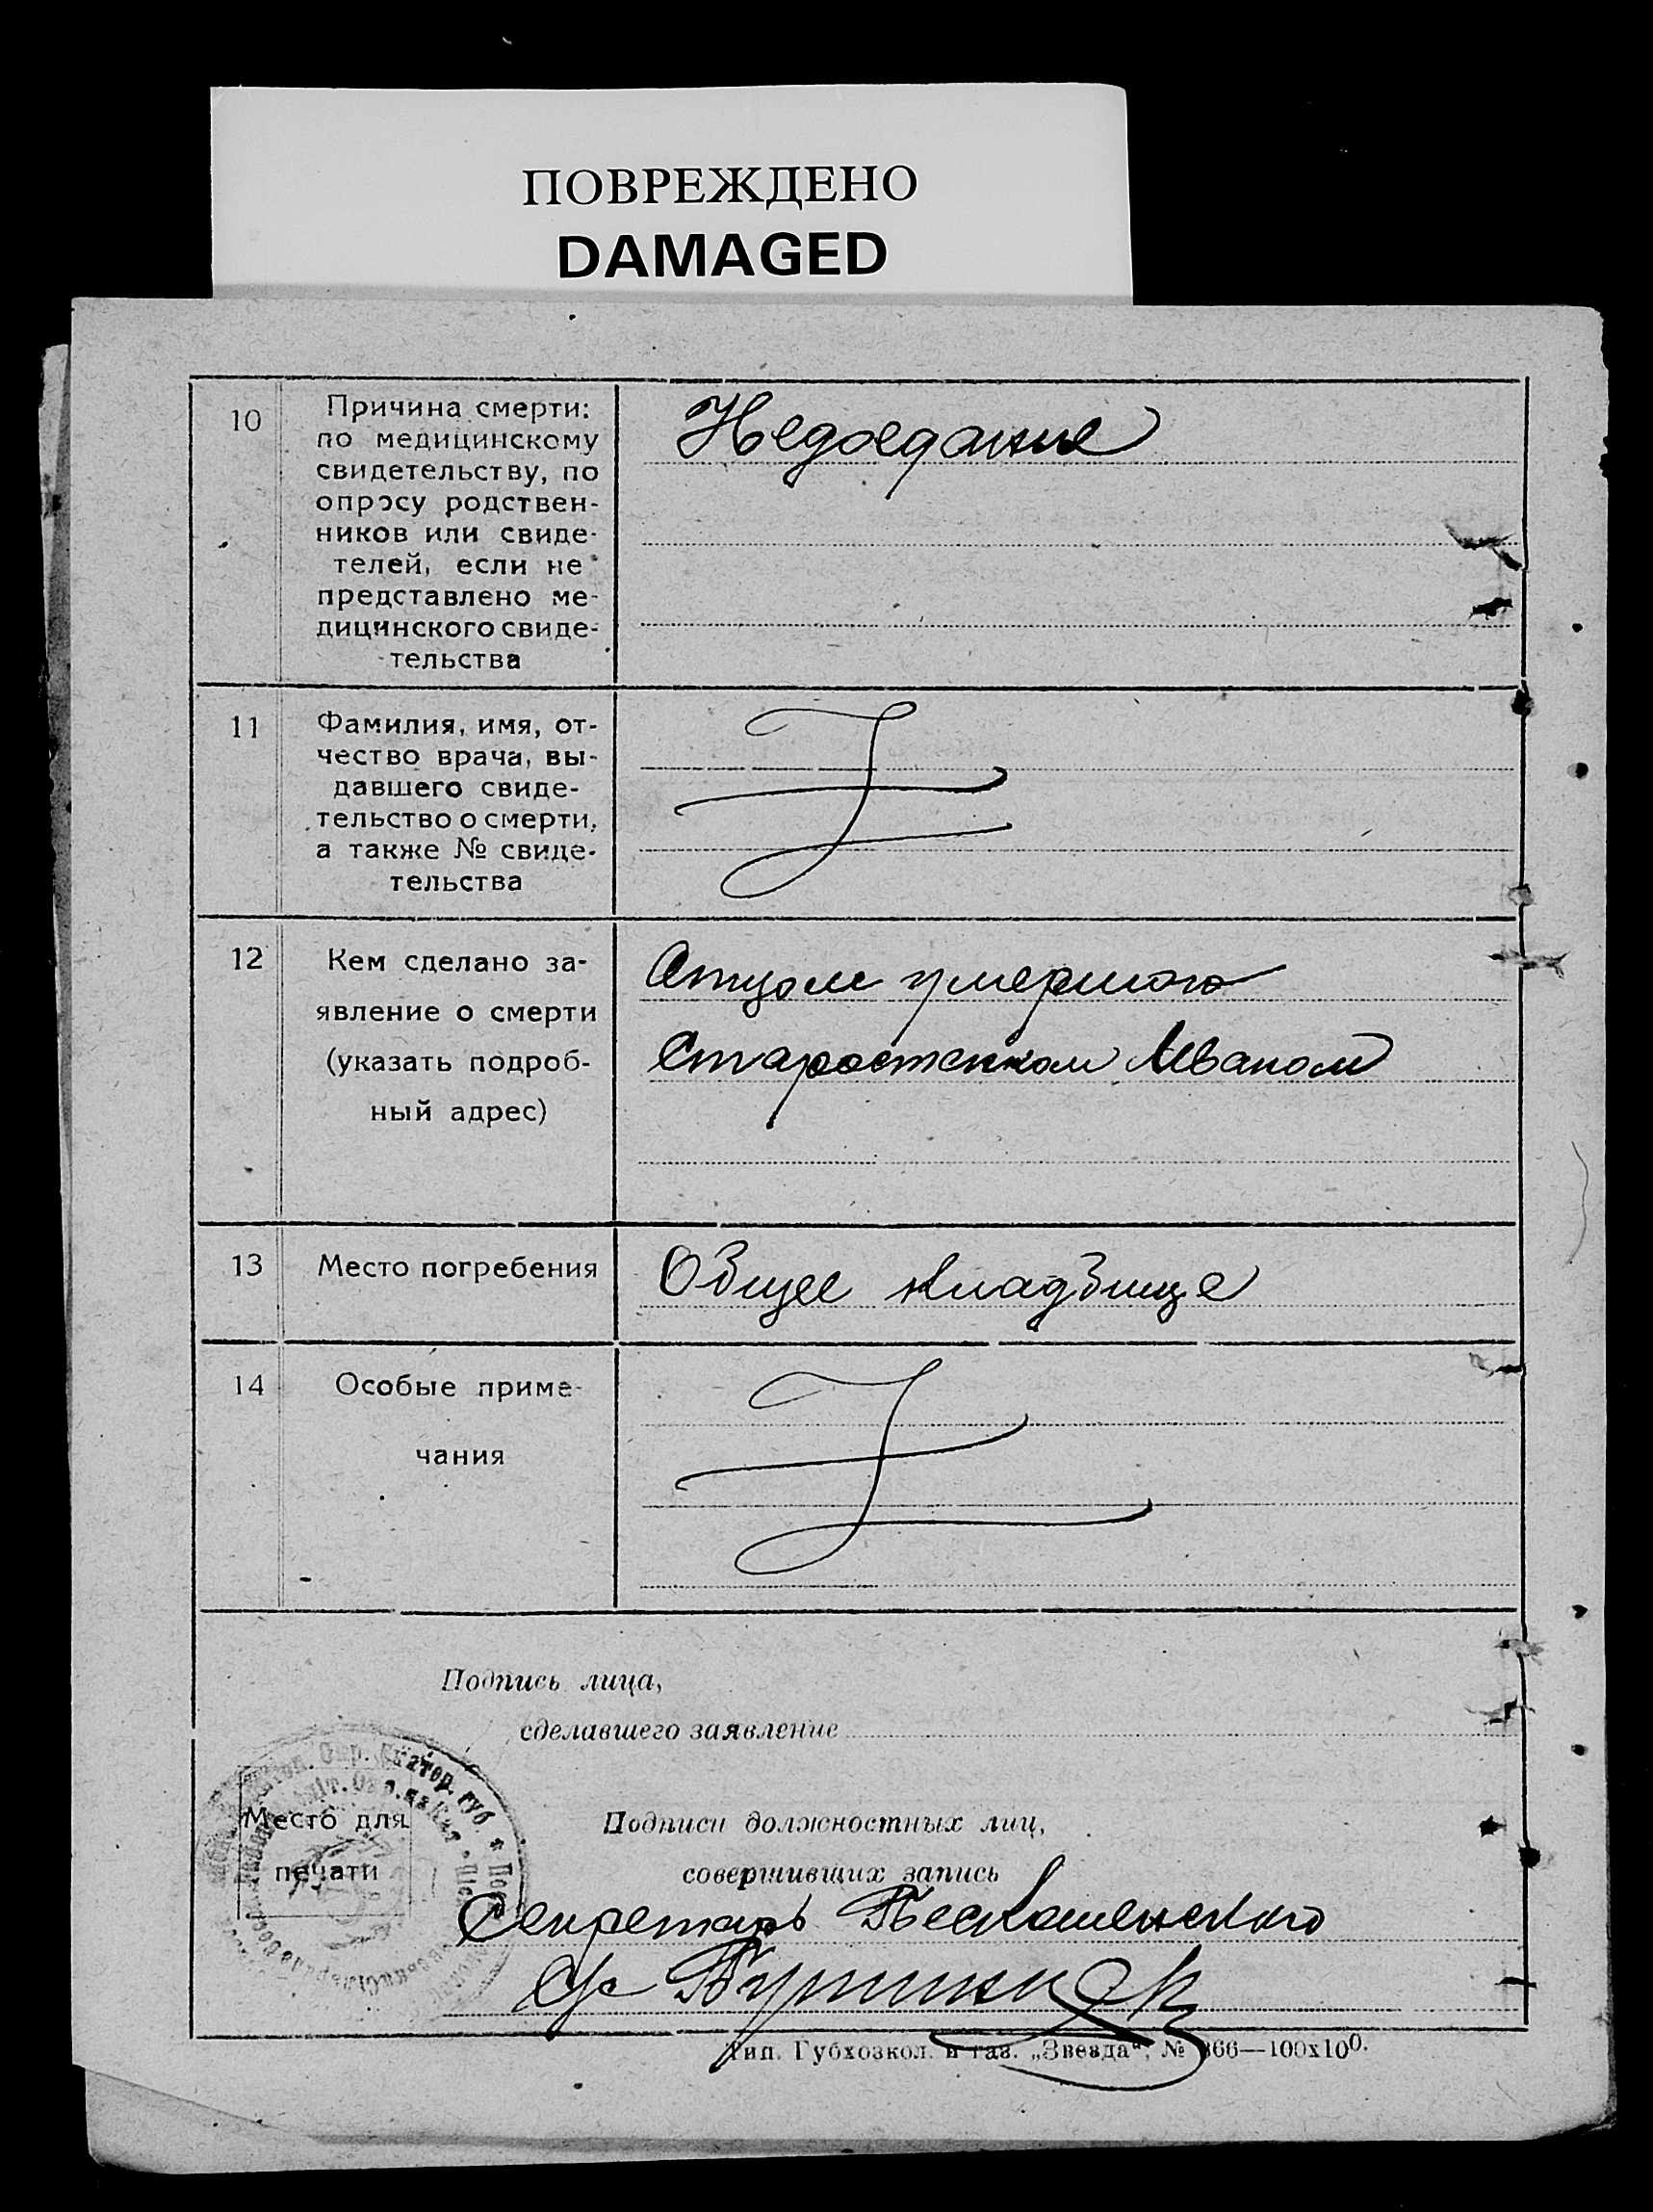 ПОВРЕЖДЕНО
DAMAGED
10
Причина смерти:
по медицинскому
свидетельству, по
опросу родствен-
ников или свиде-
телей, если не
представлено ме-
дицинского свиде-
тельства
Недоедание
11
Фамилия, имя, от-
чество врача, вы-
давшего свиде-
тельство о смерти,
а также № свиде-
тельства
12
Кем сделано за-
явление о смерти
(указать подроб-
ный адрес)
Отцом умершого
Старостенком Иваном
13
Место погребения
Общее кладбище
14
Особые приме-
чания
Подпись лица,
сделавшего заявление
Екатер. губ.
Место для
печати
Подписи должностных лиц,
совершивших запись
Секретарь
с/с
Тип. Губхозкол. и газ. „Звезда", № 366—100х100.